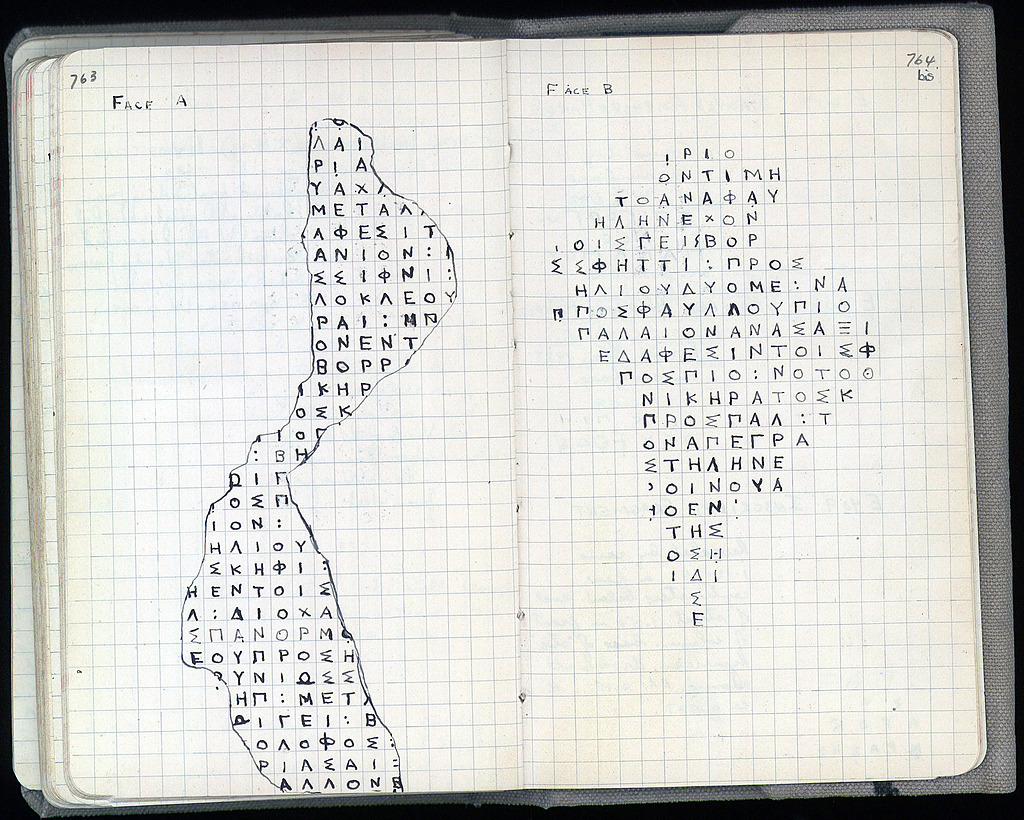 763
FACE A
Ο
ΛΑΙ
ΡΙΑ
ΥΑΧΛ
ΜΕΤΑΛ
ΑΦΕΣΙΤ
ΑΝΙΟΝ:
ΣΣΙΦΝΙ:
ΛΟΚΛΕΟΥ
ΡΑΙ:ΜΠ
ΟΝΕΝΤ
ΒΟΡΡ
ΙΚΗΡ
ΟΣΚ
ΙΟΓ
:ΒΗ
ΩΙΓ
ΟΣΠ
ΙΟΝ:
ΗΛΙΟΥ
ΣΚΗΦΙ:
ΗΕΝΤΟΙΣ
Λ:ΔΙΟΧΑ
ΣΠΑΝΟΡΜΟ
ΕΟΥΠΡΟΣΗ
ΥΝΙΩΣΣ
ΗΠ:ΜΕΤΛ
ΡΙΓΕΙ:Β
ΟΛΟΦΟΣ:
ΡΙΑΣΑΙ=
ΑΛΛΟΝΕ
764
bis
FACE B
ΙΡΙΟ
ΟΝΤΙΜΗ
ΤΟΑΝΑΦΑΥ
ΗΛΗΝΕΧΟΝ
ΙΟΙΣΓΕΙΒΟΡ
ΣΣΦΗΤΤΙ:ΠΡΟΣ
ΗΛΙΟΥΔΥΟΜΕ:ΝΑ
ΠΠΟΣΦΑΥΛΛΟΥΠΙΟ
ΠΑΛΑΙΟΝΑΝΑΣΑΞΙ
ΕΔΑΦΕΣΙΝΤΟΙΣΦ
ΠΟΣΠΙΟ:ΝΟΤΟΘ
ΝΙΚΗΡΑΤΟΣΚ
ΠΡΟΣΠΑΛ:Τ
ΟΝΑΠΕΓΡΑ
ΣΤΗΛΗΝΕ
ΟΙΝΟΥΑ
ΟΕΝ
ΤΗΣ
ΟΣΗ
ΙΔΙ
Σ
Ε